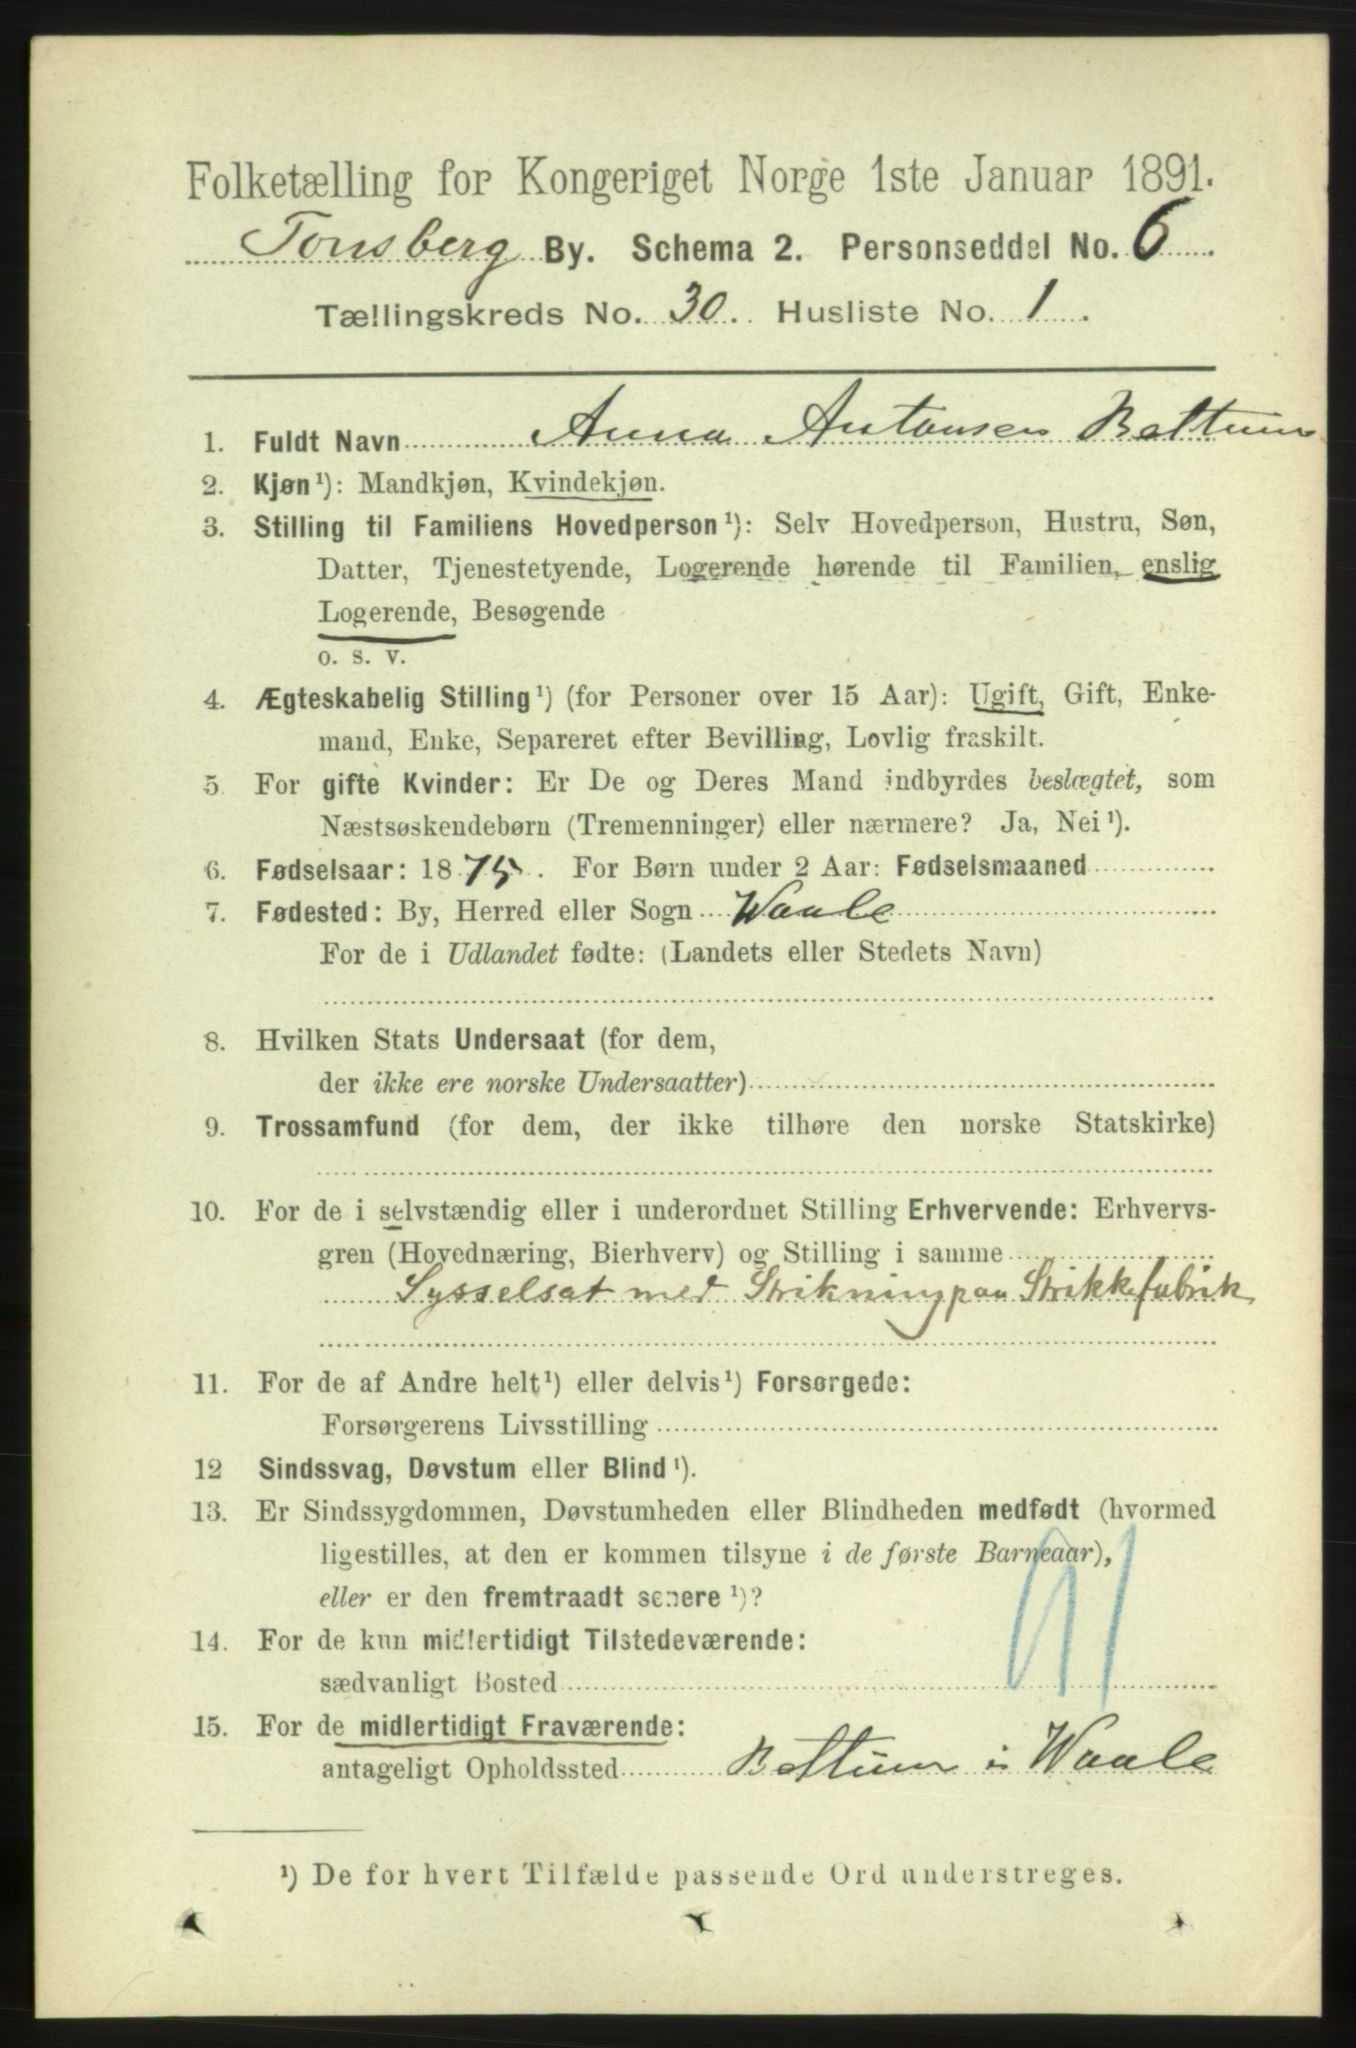 Folketælling for Kongeriget Norge 1ste Januar 1891.
Tønsberg By. Schema 2. Personseddel No. 6
Tællingskreds No. 30. Husliste No. 1.
1. Fuldt Navn Anna Antonsen Bettum
2. Kjøn¹): Mandkjøn, Kvindekjøn.
3. Stilling til Familiens Hovedperson¹): Selv Hovedperson, Hustru, Søn,
Datter, Tjenestetyende, Logerende hørende til Familien, enslig
Logerende, Besøgende
o. s. v.
4. Ægteskabelig Stilling¹) (for Personer over 15 Aar): Ugift, Gift, Enke-
mand, Enke, Separeret efter Bevilling, Lovlig fraskilt.
5. For gifte Kvinder: Er De og Deres Mand indbyrdes beslægtet, som
Næstsøskendebørn (Tremenninger) eller nærmere? Ja, Nei¹).
6. Fødselsaar: 1875. For Børn under 2 Aar: Fødselsmaaned
7. Fødested: By, Herred eller Sogn Waale
For de i Udlandet fødte: (Landets eller Stedets Navn)
8. Hvilken Stats Undersaat (for dem,
der ikke ere norske Undersaatter)
9. Trossamfund (for dem, der ikke tilhøre den norske Statskirke)
10. For de i selvstændig eller i underordnet Stilling Erhvervende: Erhvervs-
gren (Hovednæring, Bierhverv) og Stilling i samme
Sysselsat med Strikning paa Strikkefabrik
11. For de af Andre helt¹) eller delvis¹) Forsørgede:
Forsørgerens Livsstilling
12 Sindssvag, Døvstum eller Blind¹).
13. Er Sindssygdommen, Døvstumheden eller Blindheden medfødt (hvormed
ligestilles, at den er kommen tilsyne i de første Barneaar),
eller er den fremtraadt senere¹)?
14. For de kun midlertidigt Tilstedeværende:
sædvanligt Bosted
15. For de midlertidigt Fraværende:
antageligt Opholdssted Bettum i Waale
¹) De for hvert Tilfælde passende Ord understreges.